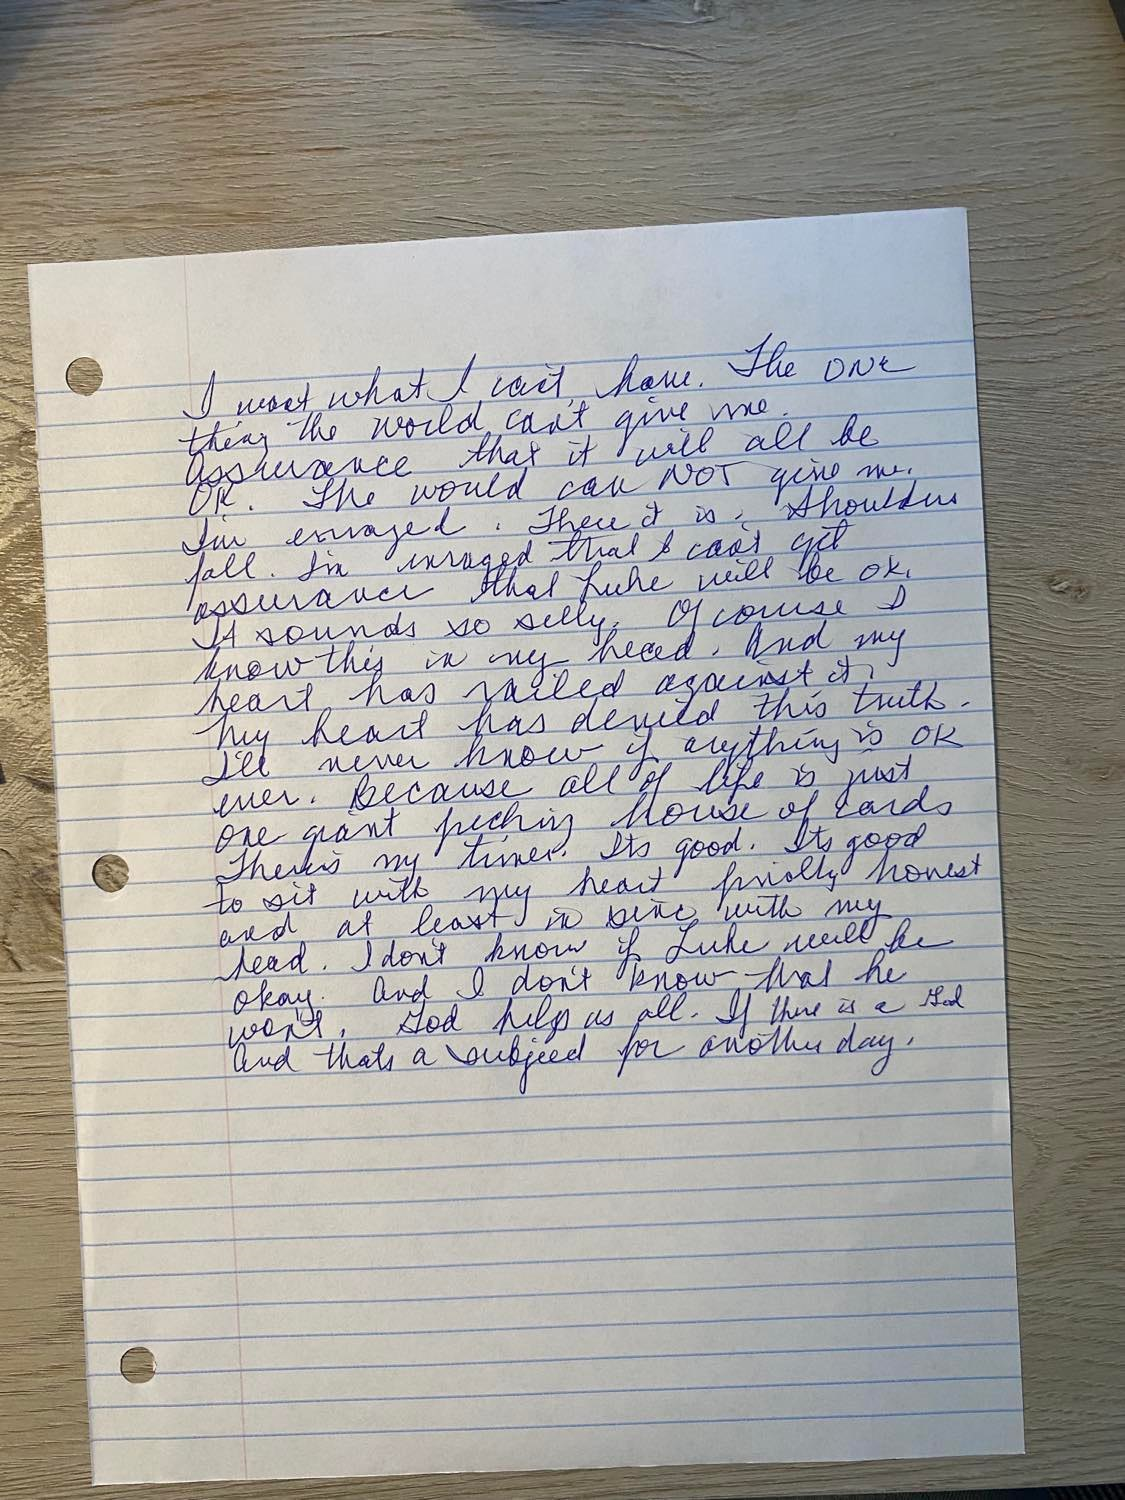 I want what I can't have. The ONE
thing the world can't give me.
Assurance that it will all be
OK. The world can NOT give me.
I'm enraged. There it is. Shoulders
fall. I'm enraged that I can't get
assurance that Luke will be ok.
It sounds so silly. Of course I
know this in my head. And my
heart has railed against it.
My heart has denied this truth.
I'll never know if anything is OK
ever. Because all of life is just
one giant house of cards
There's my timer. Its good. Its good
to sit with my heart finally honest
and at least in sinc with my
head. I don't know if Luke will be
okay. And I don't know that he
won't. God help us all. If there is a God
And thats a subject for another day.